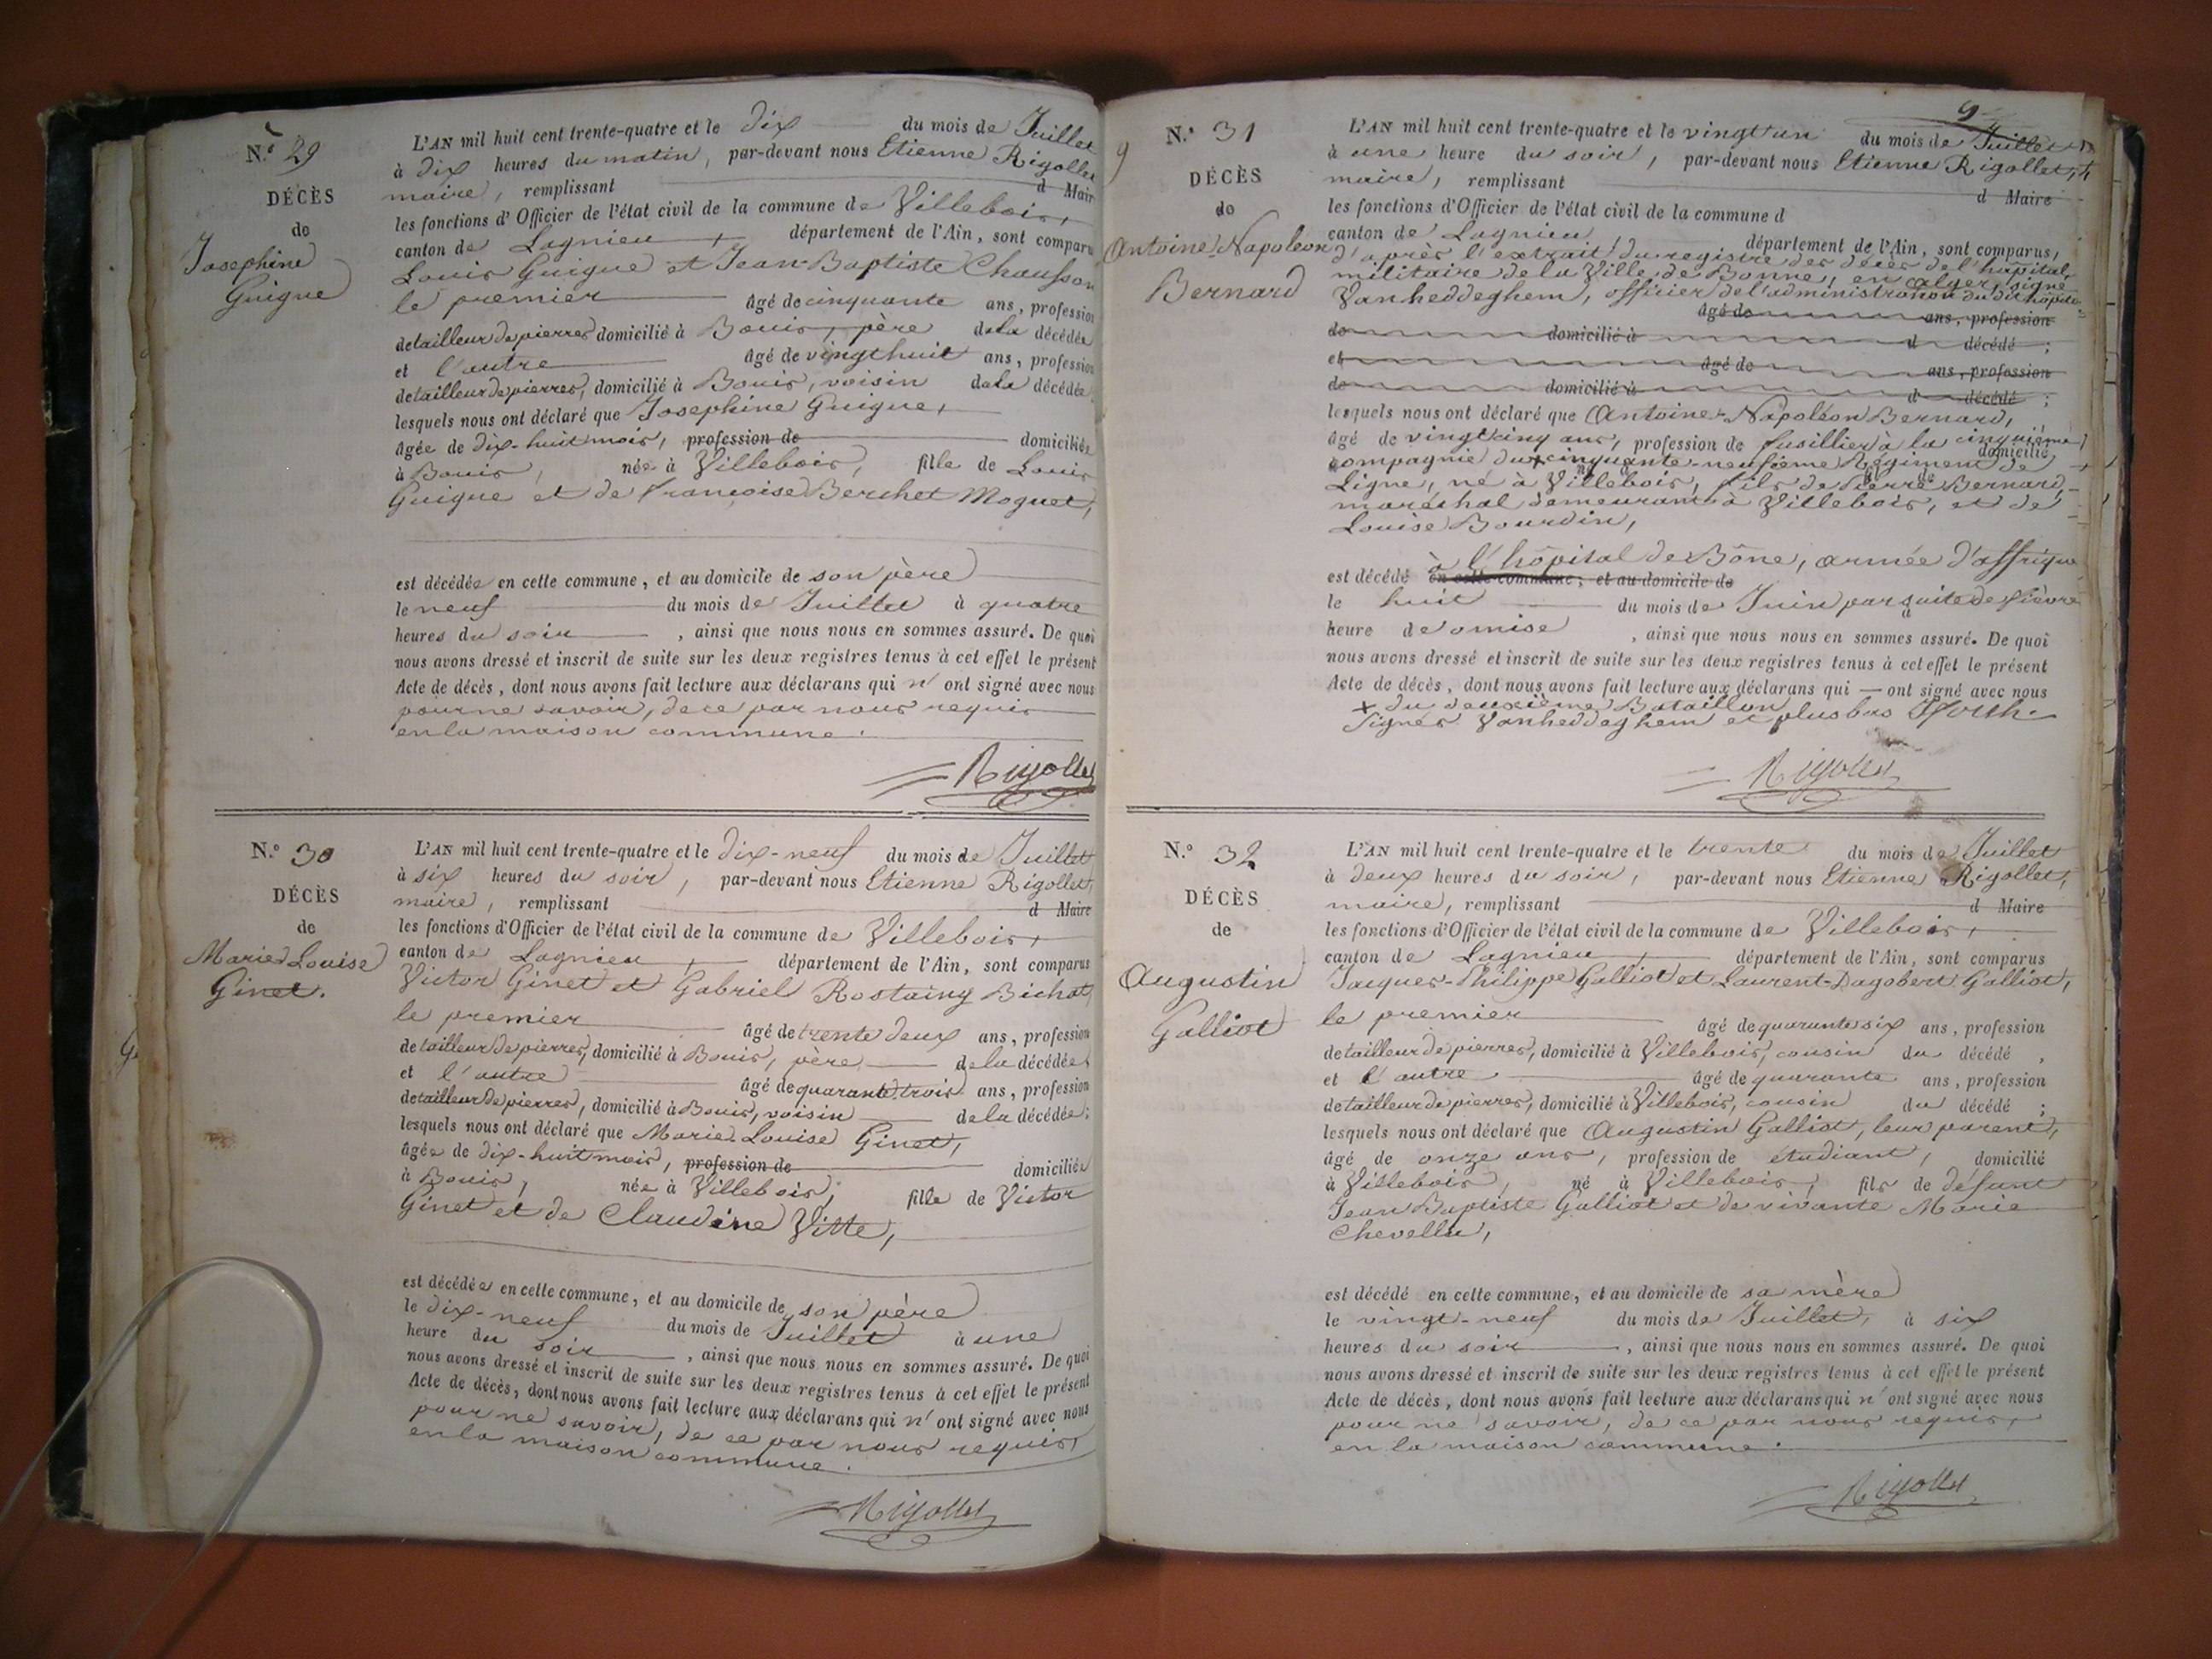 N.° 29
DÉCÈS
de
Josephine
Guigue
L'AN mil huit cent trente-quatre et le dix du mois de Juillet
à dix heures du matin, par-devant nous Etienne Rigollet
maire, remplissant d Maire
les fonctions d'Officier de l'état civil de la commune de Villebois,
canton de Lagnieu, département de l'Ain, sont comparu
Louis Guigue et Jean-Baptiste Chausson
le premier âgé de cinquante ans, profession
de tailleur de pierres, domicilié à Bouis, père de la décédée
et l'autre âgé de vingt huit ans, profession
de tailleur de pierres, domicilié à Bouis, voisin de la décédée
lesquels nous ont déclaré que Josephine Guigue,
âgée de dix-huit mois, profession de domiciliée
à Bouis, née à Villebois, fille de Louis
Guigue et de Françoise Berchet Moguet,
est décédée en cette commune, et au domicile de son père
le neuf du mois de Juillet à quatre
heures du soir, ainsi que nous nous en sommes assuré. De quoi
nous avons dressé et inscrit de suite sur les deux registres tenus à cet effet le présent
Acte de décès, dont nous avons fait lecture aux déclarans qui n'ont signé avec nous
pour ne savoir, de ce par nous requis
en la maison commune.
Rigollet
N.° 30
DÉCÈS
de
Marie Louise
Ginet.
L'AN mil huit cent trente-quatre et le dix-neuf du mois de Juillet
à six heures du soir, par-devant nous Etienne Rigollet,
maire, remplissant d Maire
les fonctions d'Officier de l'état civil de la commune de Villebois,
canton de Lagnieu, département de l'Ain, sont comparus
Victor Ginet et Gabriel Rostaing Bichat
le premier âgé de trente deux ans, profession
de tailleur de pierres, domicilié à Bouis, père de la décédée
et l'autre âgé de quarante trois ans, profession
de tailleur de pierres, domicilié à Bouis, voisin de la décédée;
lesquels nous ont déclaré que Marie Louise Ginet,
âgée de dix-huit mois, profession de domiciliée
à Bouis, née à Villebois, fille de Victor
Ginet et de Claudine Vitte,
est décédée en cette commune, et au domicile de son père
le dix-neuf du mois de Juillet à une
heure du soir, ainsi que nous nous en sommes assuré. De quoi
nous avons dressé et inscrit de suite sur les deux registres tenus à cet effet le présent
Acte de décès, dont nous avons fait lecture aux déclarans qui n'ont signé avec nous
pour ne savoir, de ce par nous requis,
en la maison commune.
Rigollet
9
9
N.° 31
DÉCÈS
de
Antoine-Napoléon
Bernard
L'AN mil huit cent trente-quatre et le vingt un du mois de Juillet
à une heure du soir, par-devant nous Etienne Rigollet,
maire, remplissant d Maire
les fonctions d'Officier de l'état civil de la commune d
canton de Lagnieu, département de l'Ain, sont comparus,
d'après l'extrait du registre des décès de l'hôpital
militaire de la Ville de Bonne, en alger, signé
Vanheddeghem, officier de l'administration du dit hôpital
âgé de ans, profession
de domicilié à d décédé;
et âgé de ans, profession
de domicilié à d décédé;
lesquels nous ont déclaré que Antoine-Napoléon Bernard,
âgé de vingt cinq ans, profession de fusillier à la cinquième
domicilié
compagnie du x cinquante-neufième Régiment de
Ligne, né à Villebois, fils de Pierre Bernard,
maréchal demeurant à Villebois, et de
Louise Bourdin,
à l'hôpital de Bône, armée d'affrique
est décédé en cette commune; et au domicile de
le huit du mois de Juin par suite de fièvre
heure de omise, ainsi que nous nous en sommes assuré. De quoi
nous avons dressé et inscrit de suite sur les deux registres tenus à cet effet le présent
Acte de décès, dont nous avons fait lecture aux déclarans qui — ont signé avec nous
x du deuxième Bataillon
Signés Vanheddeghem et plus bas
Rigollet
N.° 32
DÉCÈS
de
Augustin
Galliot
L'AN mil huit cent trente-quatre et le trente du mois de Juillet
à deux heures du soir, par-devant nous Etienne Rigollet,
maire, remplissant d Maire
les fonctions d'Officier de l'état civil de la commune de Villebois,
canton de Lagnieu, département de l'Ain, sont comparus
Jacques-Philippe Galliot et Laurent-Dagobert Galliot,
le premier âgé de quarante six ans, profession
de tailleur de pierres, domicilié à Villebois, cousin du décédé,
et l'autre âgé de quarante ans, profession
de tailleur de pierres, domicilié à Villebois, cousin du décédé;
lesquels nous ont déclaré que Augustin Galliot, leur parent,
âgé de onze ans, profession de étudiant, domicilié
à Villebois, né à Villebois, fils de defunt
Jean Baptiste Galliot et de vivante Marie
Chevellu,
est décédé en cette commune, et au domicile de sa mère
le vingt-neuf du mois de Juillet, à six
heures du soir, ainsi que nous nous en sommes assuré. De quoi
nous avons dressé et inscrit de suite sur les deux registres tenus à cet effet le présent
Acte de décès, dont nous avons fait lecture aux déclarans qui n'ont signé avec nous
pour ne savoir, de ce par nous requis,
en la maison commune.
Rigollet